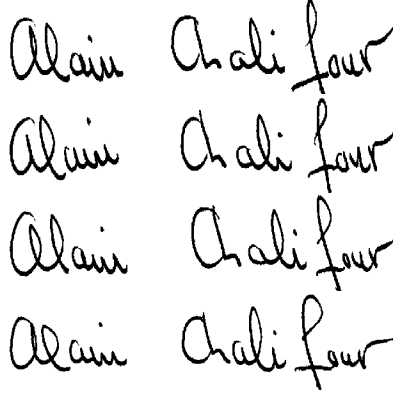 Alain Chalifour
Alain Chalifour
Alain Chalifour
Alain Chalifour